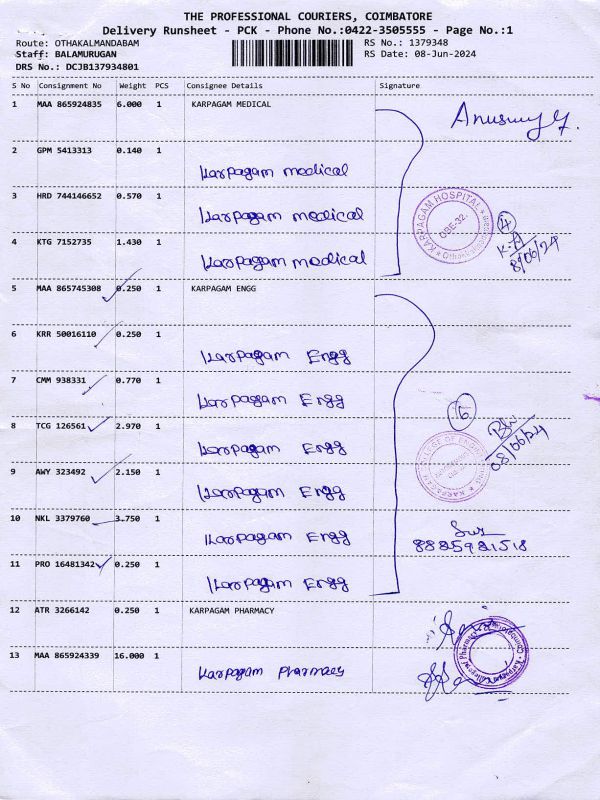 THE PROFESSIONAL COURIERS, COIMBATORE
Delivery Runsheet - PCK - Phone No.:0422-3505555 - Page No.:1
Route: OTHAKALMANDABAM
RS No.: 1379348
Staff: BALAMURUGAN
RS Date: 08-Jun-2024
DRS No.: DCJB137934801
S No Consignment No Weight PCS Consignee Details Signature
1 MAA 865924835 6.000 1 KARPAGAM MEDICAL
2 GPM 5413313 0.140 1 Karpagam medical
3 HRD 744146652 0.570 1 Karpagam medical
KARPAGAM HOSPITAL
CBE-32.
4
8/06/24
4 KTG 7152735 1.430 1 Karpagam medical
5 MAA 865745308 0.250 1 KARPAGAM ENGG
6 KRR 50016110 0.250 1 Karpagam Engg
7 CMM 938331 0.770 1 Karpagam Engg
6
8 TCG 126561 2.970 1 Karpagam Engg
08/06/24
9 AWY 323492 2.150 1 Karpagam Engg
10 NKL 3379760 3.750 1 Karpagam Engg
8885981518
11 PRO 16481342 0.250 1 Karpagam Engg
12 ATR 3266142 0.250 1 KARPAGAM PHARMACY
13 MAA 865924339 16.000 1 Karpagam Pharmacy